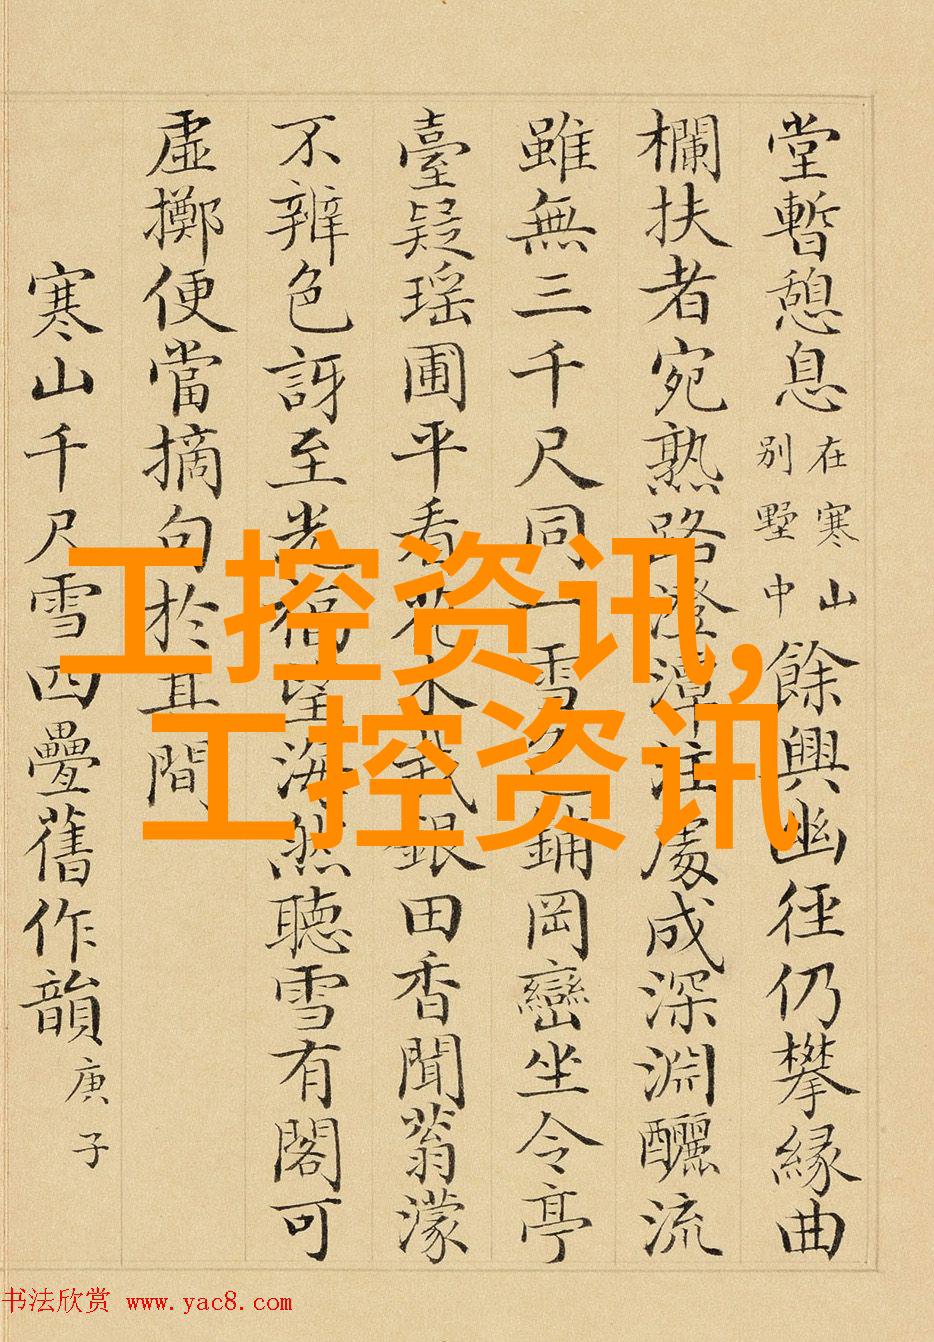 堂暫憩息
在寒山
別墅中
餘興幽徑仍攀緣曲
欄扶者宛熟路澄潭注處成深淵釃流
雖無三千尺同一雪色鋪岡巒坐令亭
臺疑瑶圃平看花木銀田香聞蓊濛
不辨色訝至光福望海然聽雪有閣可
虛擲便當摘句於其間
寒山千尺雪四疊舊作韻
庚子
工控资讯,
工控资讯
书法欣赏 www.yac8.com